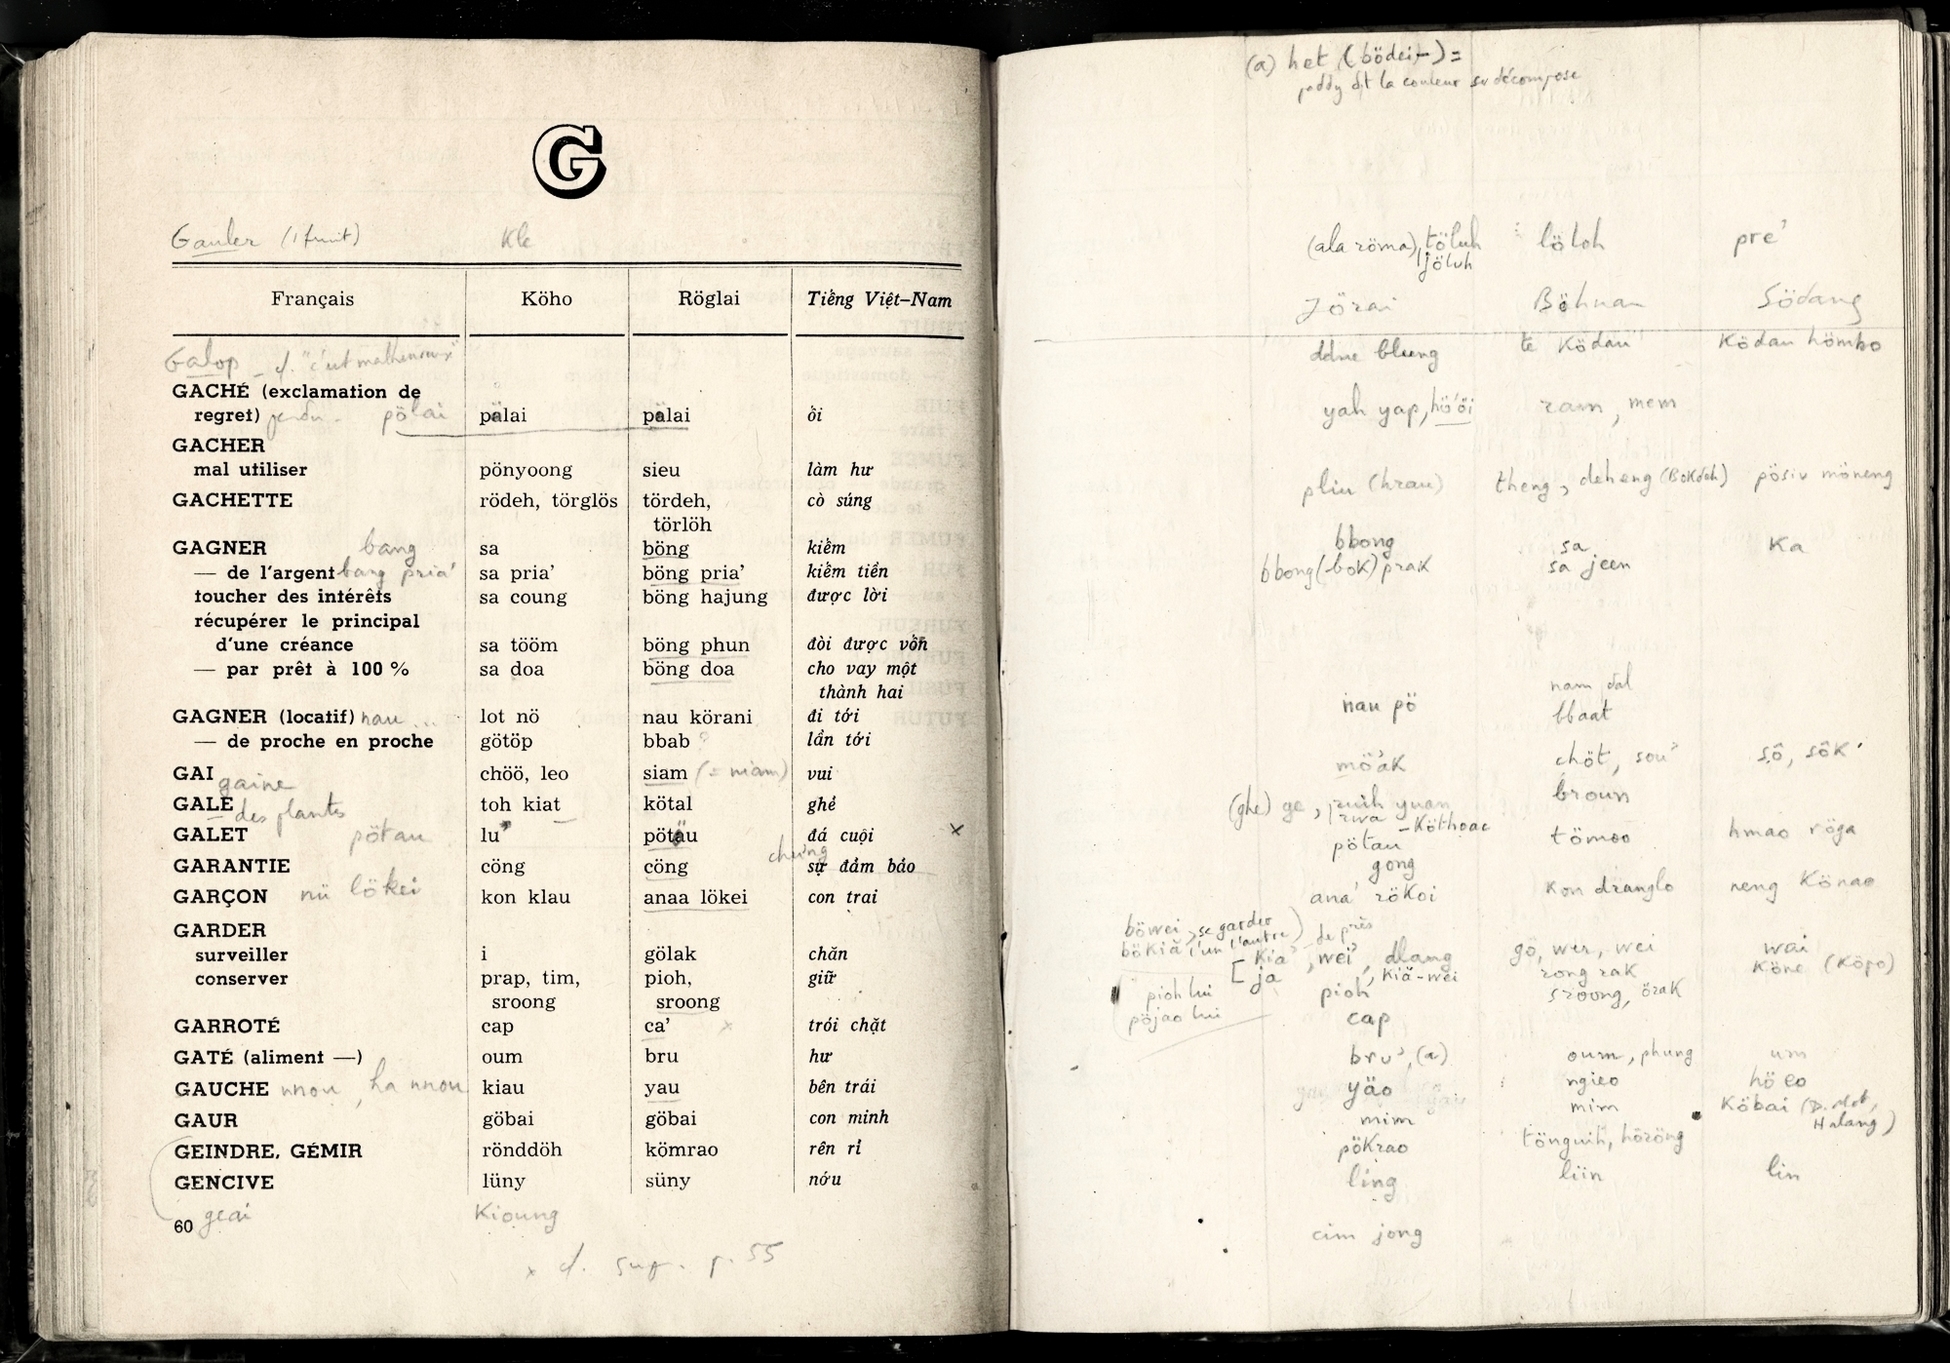 G
Gauler (1 fruit) Kle
Français Köho Röglai Tiếng Việt-Nam
Galop
GACHÉ (exclamation de
regret) perdu - pölai pälai pälai ôi
GACHER
mal utiliser pönyoong sieu làm hư
GACHETTE rödeh, törglös tördeh, cò súng
törlöh
GAGNER bang sa böng kiếm
— de l'argent bang pria' sa pria' böng pria' kiếm tiền
toucher des intérêts sa coung böng hajung được lời
récupérer le principal
d'une créance sa tööm böng phun đòi được vốn
— par prêt à 100 % sa doa böng doa cho vay một
thành hai
GAGNER (locatif) nau ... lot nö nau körani đi tới
— de proche en proche götöp bbab ? lần tới
GAI chöö, leo siam (= niam) vui
gaine
GALE toh kiat kötal ghẻ
des plantes
GALET pötau lu' pötäu đá cuội x
chứng
GARANTIE cöng cöng sự đảm bảo
GARÇON nü lökei kon klau anaa lökei con trai
GARDER
surveiller i gölak chăn
conserver prap, tim, pioh, giữ
sroong sroong
GARROTÉ cap ca' x trói chặt
GATÉ (aliment —) oum bru hư
GAUCHE nnou, ha nnou kiau yau bên trái
GAUR göbai göbai con minh
GEINDRE, GÉMIR rönddöh kömrao rên rỉ
GENCIVE lüny süny nớu
60 geai Kioung
x cf. sup. p. 55
(a) het (bödei-) =
paddy dt la couleur se décompose
(ala röma), töluh lötoh pre'
jöluh
Jörai Böhnar Södang
ddne blung te Ködau Ködau hömbo
yah yap, hö'öi ram, mem
pliu (hrau) theng, deheng (Bokdeh) pösiv möneng
bbong sa Ka
bbong (bok) prak sa jeen
nam dal
nau pö bbaat
mö'ak chöt, sou' sô, sôk'
(ghe) ge, yuan broun
- Köthoac
pötau tömoo hmao röga
gong
ana' rökoi kon dranglo neng Könao
böwei, se garder
bökiä l'un l'autre) de près
[ Kia', wei', dlang gö, wer, wei wai
ja, kiä-wei rong rak Köne (Köpo)
pioh lui pioh sroong, örak
pöjao lui cap
bru', (a) oum, phung um
yäo ngieo hö eo
mim mim Köbai (D. Mot,
Halang)
pökrao tönguih, höröng
ling liin lin
cim jong